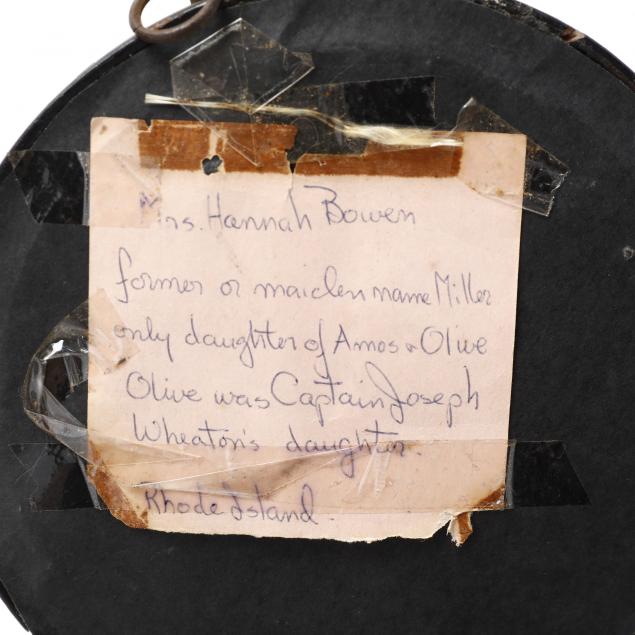 Mrs. Hannah Bowen
former or maiden name Miller
only daughter of Amos & Olive
Olive was Captain Joseph
Wheaton's daughter.
Rhode Island.